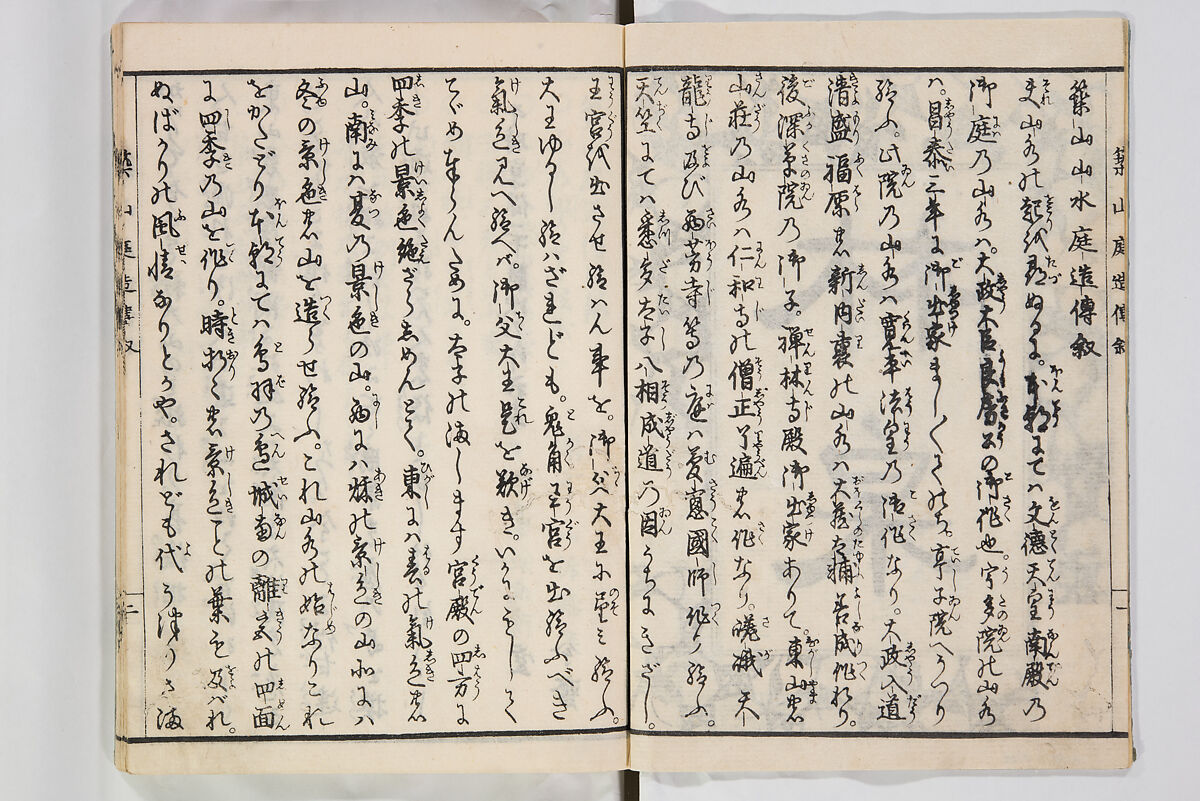 築山山水庭造傳叙
夫山水の起を尋ぬるに。本朝にては文徳天皇南殿の
御庭の山水ハ。太政大臣良房公の御作也。宇多院の山水
ハ。昌泰三年に御出家まし〳〵てのち。亭子院へうつり
給ふ。此院の山水ハ寛平法皇の御作なり。大政入道
清盛福原の新内裏の山水ハ大蔵太輔善成作れり。
後深草院の御子。禅林寺殿御出家ありて。東山の
山荘の山水ハ仁和寺の僧正了遍の作なり。嵯峨天
龍寺及び西芳寺等の庭ハ夢窓國師作り給ふ。
天竺にてハ悉多太子八相成道の因うちにきざし。
王宮を出させ給ハん事を。御父大王に望ミ給ふ。
大王ゆるし給ハざれども。兎角王宮を出給ふべき
氣色見へ給へバ。御父大王是を歎き。いかにもして
とゞめ奉らんために。太子の満します宮殿の四方に
四季の景色絶ざらしめんとて。東にハ春の氣色の
山。南にハ夏の景色の山。西にハ秋の景色の山北にハ
冬の景色の山を造らせ給ふ。これ山水の始なりこれ
をかたどり本朝にてハ鳥羽の辺城南の離宮の四面
に四季の山を作り。時折々の景色ことの葉も及バれ
ぬばかりの風情なりとかや。されども代うつりさま
築山庭造傳叙
一
築山庭造傳叙
二